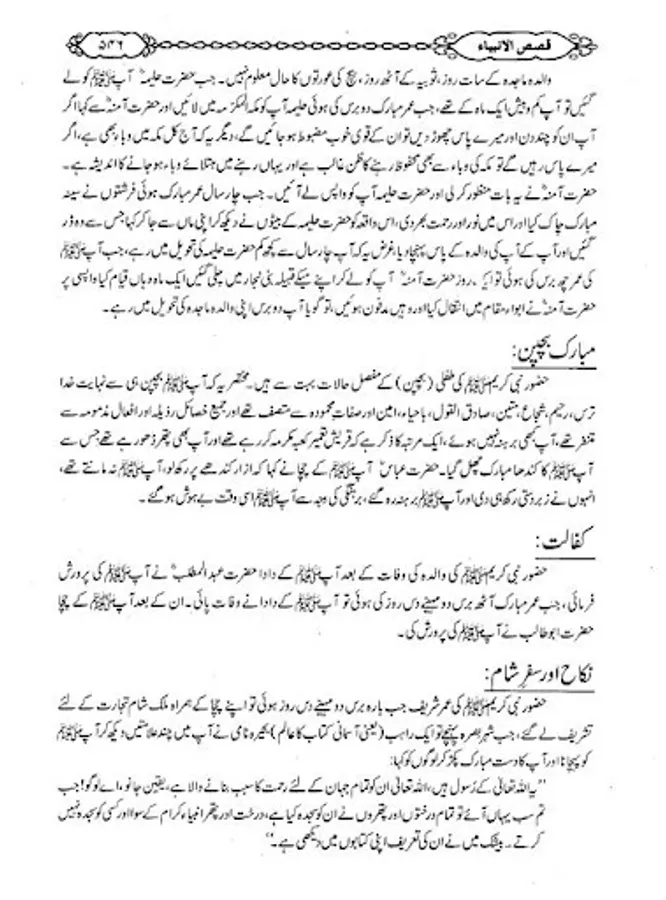 قصص الانبیاء
۵۴۶
والدہ ماجدہ کے سات روز، ثوبیہ کے آٹھ روز، بیچ کی عورتوں کا حال معلوم نہیں۔ جب حضرت حلیمہؓ آپ ﷺ کو لے
گئیں تو آپ کم و بیش ایک ماہ کے تھے، جب عمر مبارک دو برس کی ہوئی حلیمہ آپ کو مکۃ المکرمہ میں لائیں اور حضرت آمنہؓ سے کہا اگر
آپ ان کو چند دن اور میرے پاس چھوڑ دیں تو ان کے قویٰ خوب مضبوط ہو جائیں گے، دیگر یہ کہ آج کل مکہ میں وباء بھی ہے، اگر
میرے پاس رہیں گے تو مکہ کی وباء سے بھی محفوظ رہنے کا ظن غالب ہے اور یہاں رہنے میں مبتلائے وباء ہو جانے کا اندیشہ ہے۔
حضرت آمنہؓ نے یہ بات منظور کر لی اور حضرت حلیمہ آپ کو واپس لے آئیں۔ جب چار سال عمر مبارک ہوئی فرشتوں نے سینہ
مبارک چاک کیا اور اس میں نور اور رحمت بھر دی، اس واقعہ کو حضرت حلیمہ کے بیٹوں نے دیکھ کر اپنی ماں سے جا کر کہا جس سے وہ ڈر
گئیں اور آپ کے آپ کی والدہ کے پاس پہنچا دیا، غرض یہ کہ آپ چار سال سے کچھ کم حضرت حلیمہ کی تحویل میں رہے، جب آپ ﷺ
کی عمر چھ برس کی ہوئی تو ایک روز حضرت آمنہؓ آپ کو لے کر اپنے میکے قبیلہ بنی نجار میں چلی گئیں ایک ماہ وہاں قیام کیا واپسی پر
حضرت آمنہؓ نے ابواء مقام میں انتقال کیا اور وہیں مدفون ہوئیں، تو گویا آپ دو برس اپنی والدہ ماجدہ کی تحویل میں رہے۔
مبارک بچپن:
حضور نبی کریم ﷺ کی طفلی (بچپن) کے مفصل حالات بہت سے ہیں۔ مختصر یہ کہ آپ ﷺ بچپن ہی سے نہایت خدا
ترس، رحیم، شجاع، متین، صادق القول، باحیاء، امین اور صفات محمودہ سے متصف تھے اور جمیع خصائل رذیلہ اور افعال مذمومہ سے
متنفر تھے، آپ کبھی برہنہ نہیں ہوئے، ایک مرتبہ کا ذکر ہے کہ قریش تعمیر کعبہ مکرمہ کر رہے تھے اور آپ بھی پتھر ڈھو رہے تھے جس سے
آپ ﷺ کا کندھا مبارک چھل گیا۔ حضرت عباسؓ آپ ﷺ کے چچا نے کہا کہ ازار کندھے پر رکھ لو، آپ ﷺ نہ مانتے تھے،
انہوں نے زبردستی رکھ ہی دی اور آپ ﷺ برہنہ رہ گئے، برہنگی کی وجہ سے آپ ﷺ اسی وقت بے ہوش ہو گئے۔
کفالت:
حضور نبی کریم ﷺ کی والدہ کی وفات کے بعد آپ ﷺ کے دادا حضرت عبدالمطلبؓ نے آپ ﷺ کی پرورش
فرمائی، جب عمر مبارک آٹھ برس دو مہینے دس روز کی ہوئی تو آپ ﷺ کے دادا نے وفات پائی۔ ان کے بعد آپ ﷺ کے چچا
حضرت ابوطالب نے آپ ﷺ کی پرورش کی۔
نکاح اور سفر شام:
حضور نبی کریم ﷺ کی عمر شریف جب بارہ برس دو مہینے دس روز ہوئی تو اپنے چچا کے ہمراہ ملک شام تجارت کے لئے
تشریف لے گئے، جب شہر بصرہ پہنچے تو ایک راہب (یعنی آسمانی کتاب کا عالم) بحیرہ نامی نے آپ میں چند علامتیں دیکھ کر آپ ﷺ
کو پہچانا اور آپ کا دست مبارک پکڑ کر لوگوں کو کہا:
"یہ اللہ تعالیٰ کے رسول ہیں، اللہ تعالیٰ ان کو تمام جہان کے لئے رحمت کا سبب بنانے والا ہے، یقین جانو، اے لوگو! جب
تم سب یہاں آئے تو تمام درختوں اور پتھروں نے ان کو سجدہ کیا ہے، درخت اور پتھر انبیاء کرام کے سوا اور کسی کو سجدہ نہیں
کرتے۔ بیشک میں نے ان کی تعریف اپنی کتابوں میں دیکھی ہے۔"